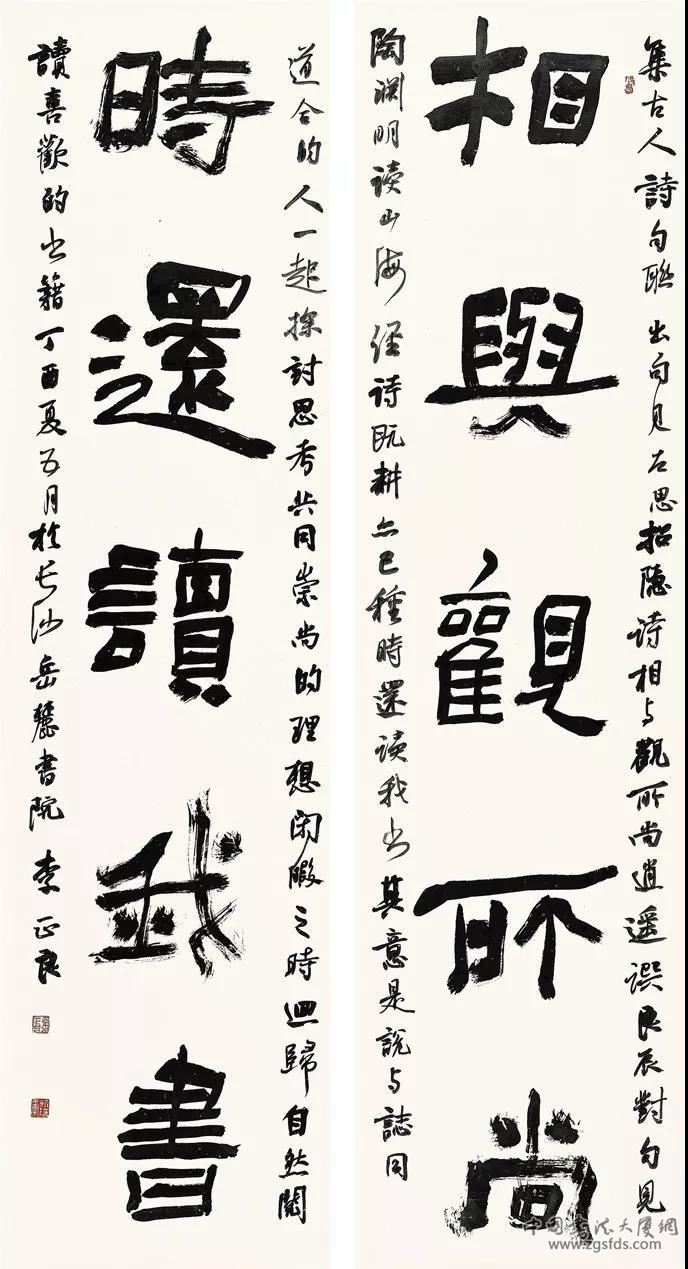 集古人詩句聯出句見左思招隐诗相与觀所尚逍遥譔良辰對句見
相與觀所尚
陶渊明读山海经诗既耕亦已種時還读我书其意是說与誌同
道合的人一起探討思考共同崇尚的理想闲暇之時迴歸自然閱
時還讀我書
讀喜歡的书籍丁酉夏五月於长沙岳麓書院李正良
中国书法大厦網
www.zgsfds.com